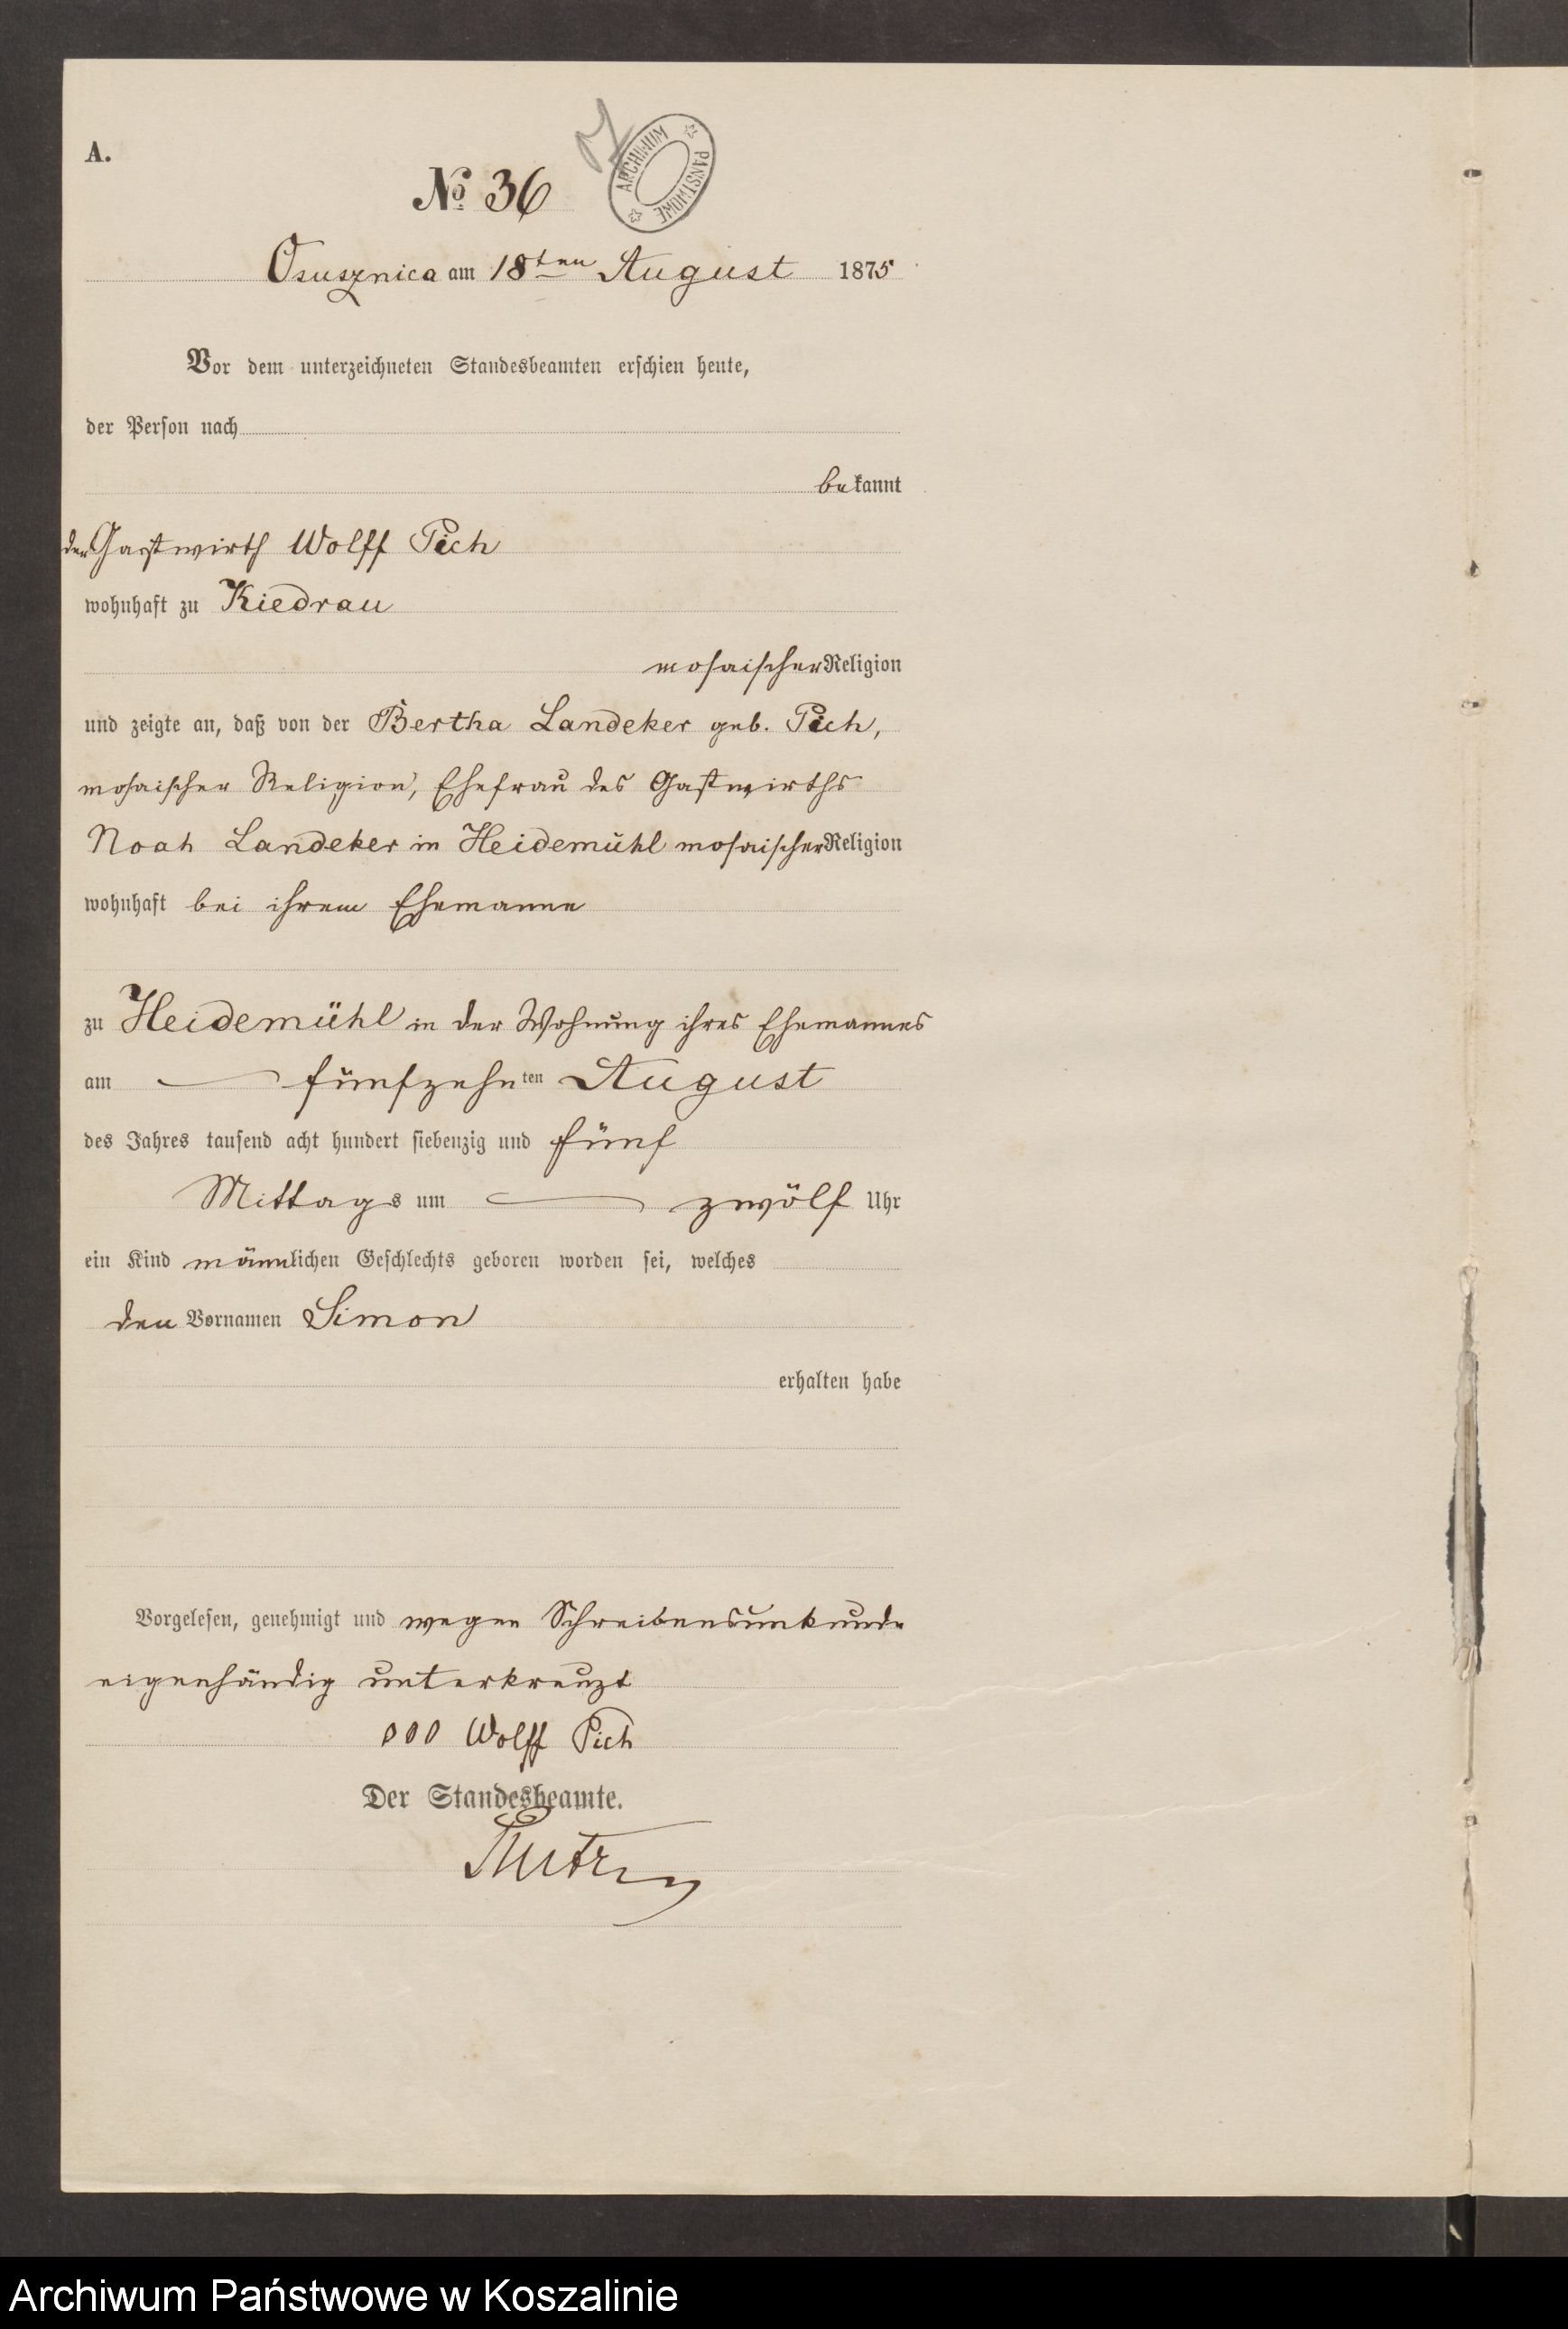 A.
№ 36
ARCHIWUM PAŃSTWOWE
Osusznica am 18ten August 1875
Vor dem unterzeichneten Standesbeamten erschien heute,
der Person nach
bekannt
der Gastwirth Wolff Pich
wohnhaft zu Kiedrau
mosaischer Religion
und zeigte an, daß von der Bertha Landeker geb. Pich,
mosaischer Religion, Ehefrau des Gastwirths
Noah Landeker in Heidemühl mosaischer Religion
wohnhaft bei ihrem Ehemanne
zu Heidemühl in der Wohnung ihres Ehemannes
am — fünfzehnten August
des Jahres tausend acht hundert siebenzig und fünf
Mittags um — zwölf Uhr
ein Kind männlichen Geschlechts geboren worden sei, welches
den Vornamen Simon
erhalten habe
Vorgelesen, genehmigt und wegen Schreibensunkunde
eigenhändig unterkreuzt
000 Wolff Pich
Der Standesbeamte.
Archiwum Państwowe w Koszalinie